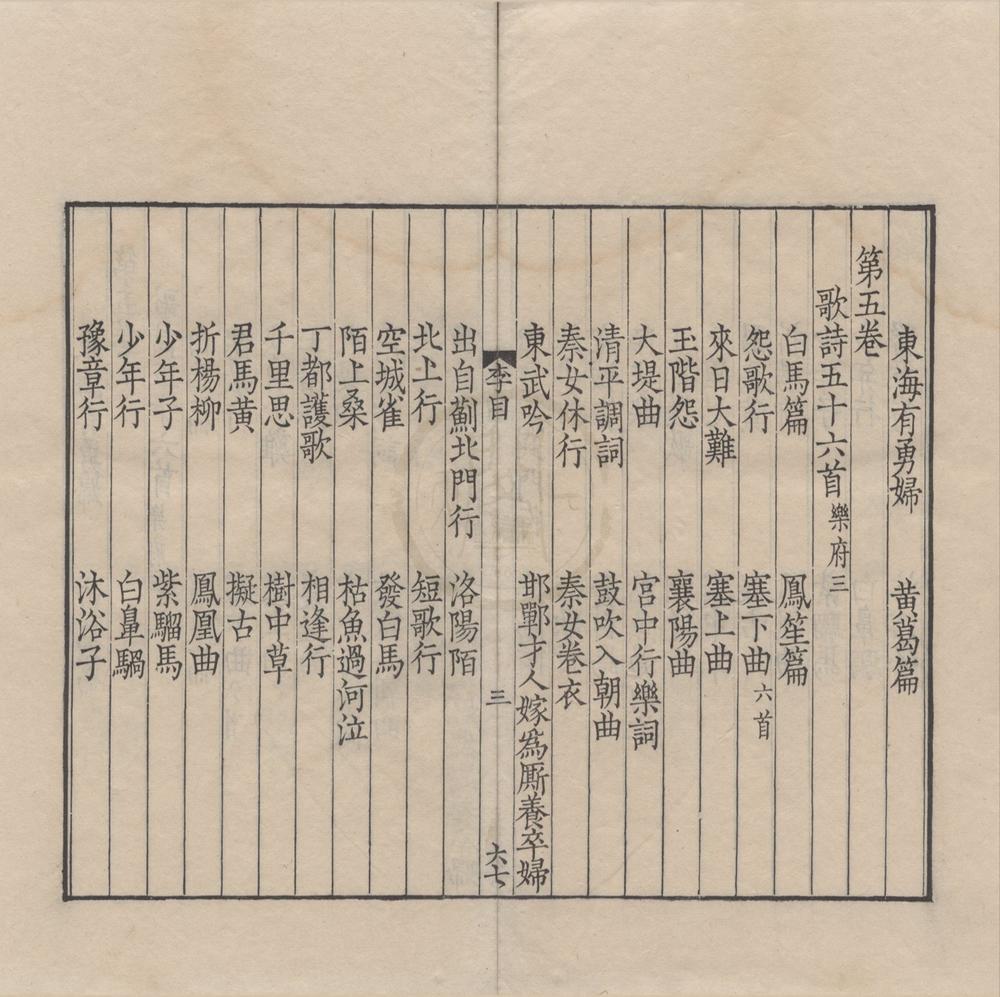 東海有勇婦　黄葛篇
第五卷
歌詩五十六首樂府三
白馬篇　鳳笙篇
怨歌行　塞下曲六首
來日大難　塞上曲
玉階怨　襄陽曲
大堤曲　宮中行樂詞
清平調詞　鼓吹入朝曲
秦女休行　秦女卷衣
東武吟　邯鄲才人嫁為厮養卒婦
李目　三　六七
出自薊北門行　洛陽陌
北上行　短歌行
空城雀　發白馬
陌上桑　枯魚過河泣
丁都護歌　相逢行
千里思　樹中草
君馬黄　擬古
折楊柳　鳳凰曲
少年子　紫騮馬
少年行　白鼻騧
豫章行　沐浴子